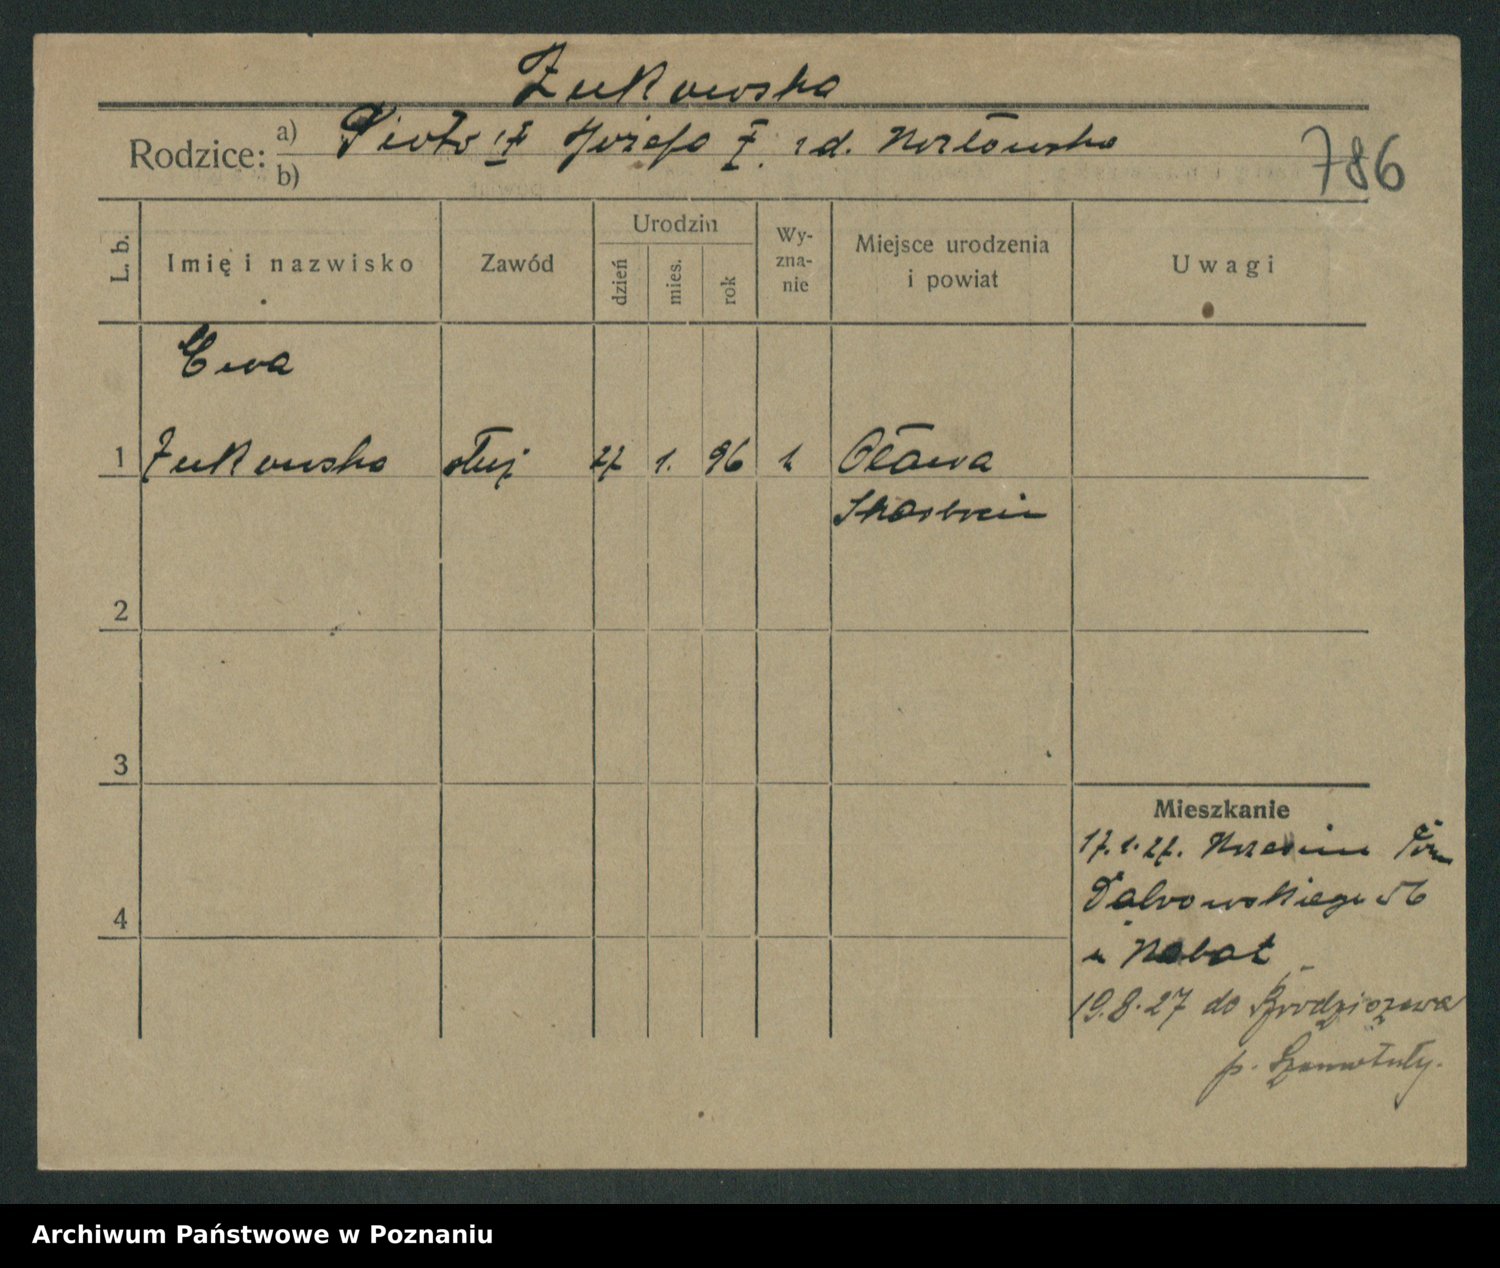 Żukowska
Rodzice: a) Piotr Ż Józefa Ż. zd. Kozłowska
b)
786
L. b. Imię i nazwisko Zawód Urodzin dzień mies. rok Wy-zna-nie Miejsce urodzenia i powiat Uwagi
Ewa
1 Żukowska służ 27 1. 96 k Oława
2
3
Mieszkanie
17.1.27.
Dąbrowskiego 56
4
19.8.27 do
p. Szamotuły.
Archiwum Państwowe w Poznaniu